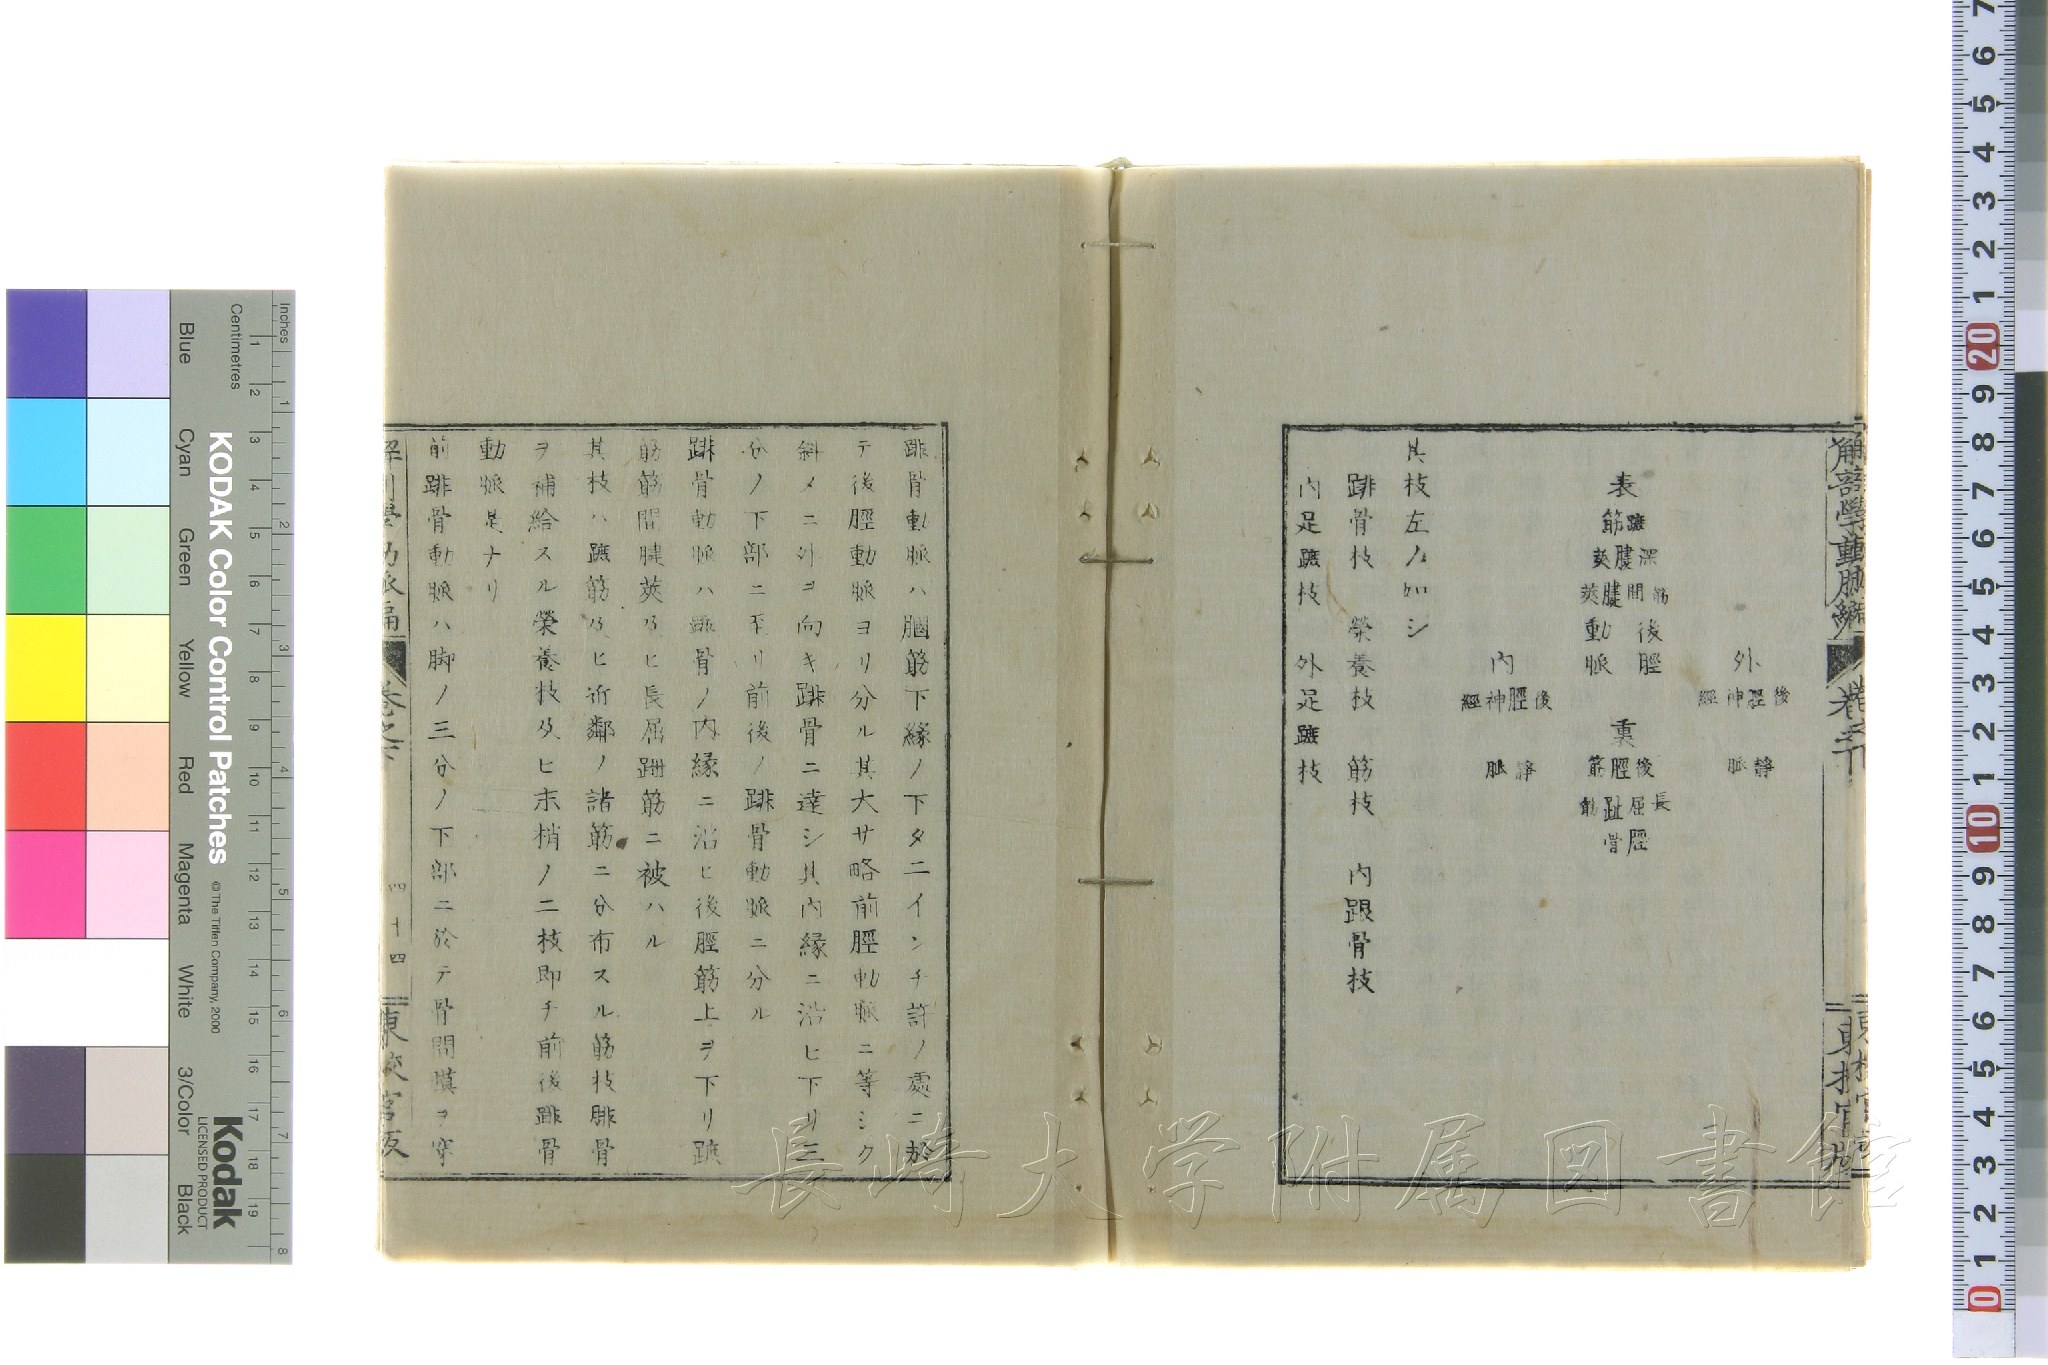 解剖學動脈編 卷之下
東校官版
外
後脛神經
靜脈
表
蹠筋
深腱莢
筋間腱莢
後脛動脈
裏
後脛筋
長屈趾筋
脛骨
内
後脛神經
靜脈
其枝左ノ如シ
腓骨枝 榮養枝 筋枝 内踝骨枝
内足蹠枝 外足蹠枝
腓骨動脈ハ膕筋下緣ノ下タ二インチ許ノ處ニ於
テ後脛動脈ヨリ分ル其大サ略前脛動脈ニ等シク
斜メニ外ヲ向キ腓骨ニ達シ其内緣ニ沿ヒ下リ三
分ノ下部ニ至リ前後ノ腓骨動脈ニ分ル
腓骨動脈ハ腓骨ノ内緣ニ沿ヒ後脛筋上ヲ下リ蹠
筋筋間腱莢及ヒ長屈𧿹筋ニ被ハル
其枝ハ蹠筋及ヒ近鄰ノ諸筋ニ分布スル筋枝腓骨
ヲ補給スル榮養枝及ヒ末梢ノ二枝即チ前後腓骨
動脈是ナリ
前腓骨動脈ハ脚ノ三分ノ下部ニ於テ骨間膜ヲ穿
解剖學動脈編 卷之下 四十四 東校官版
長崎大学附属図書館
Inches
Centimetres
KODAK Color Control Patches
© The Tiffen Company, 2000
Kodak
LICENSED PRODUCT
Blue Cyan Green Yellow Red Magenta White 3/Color Black